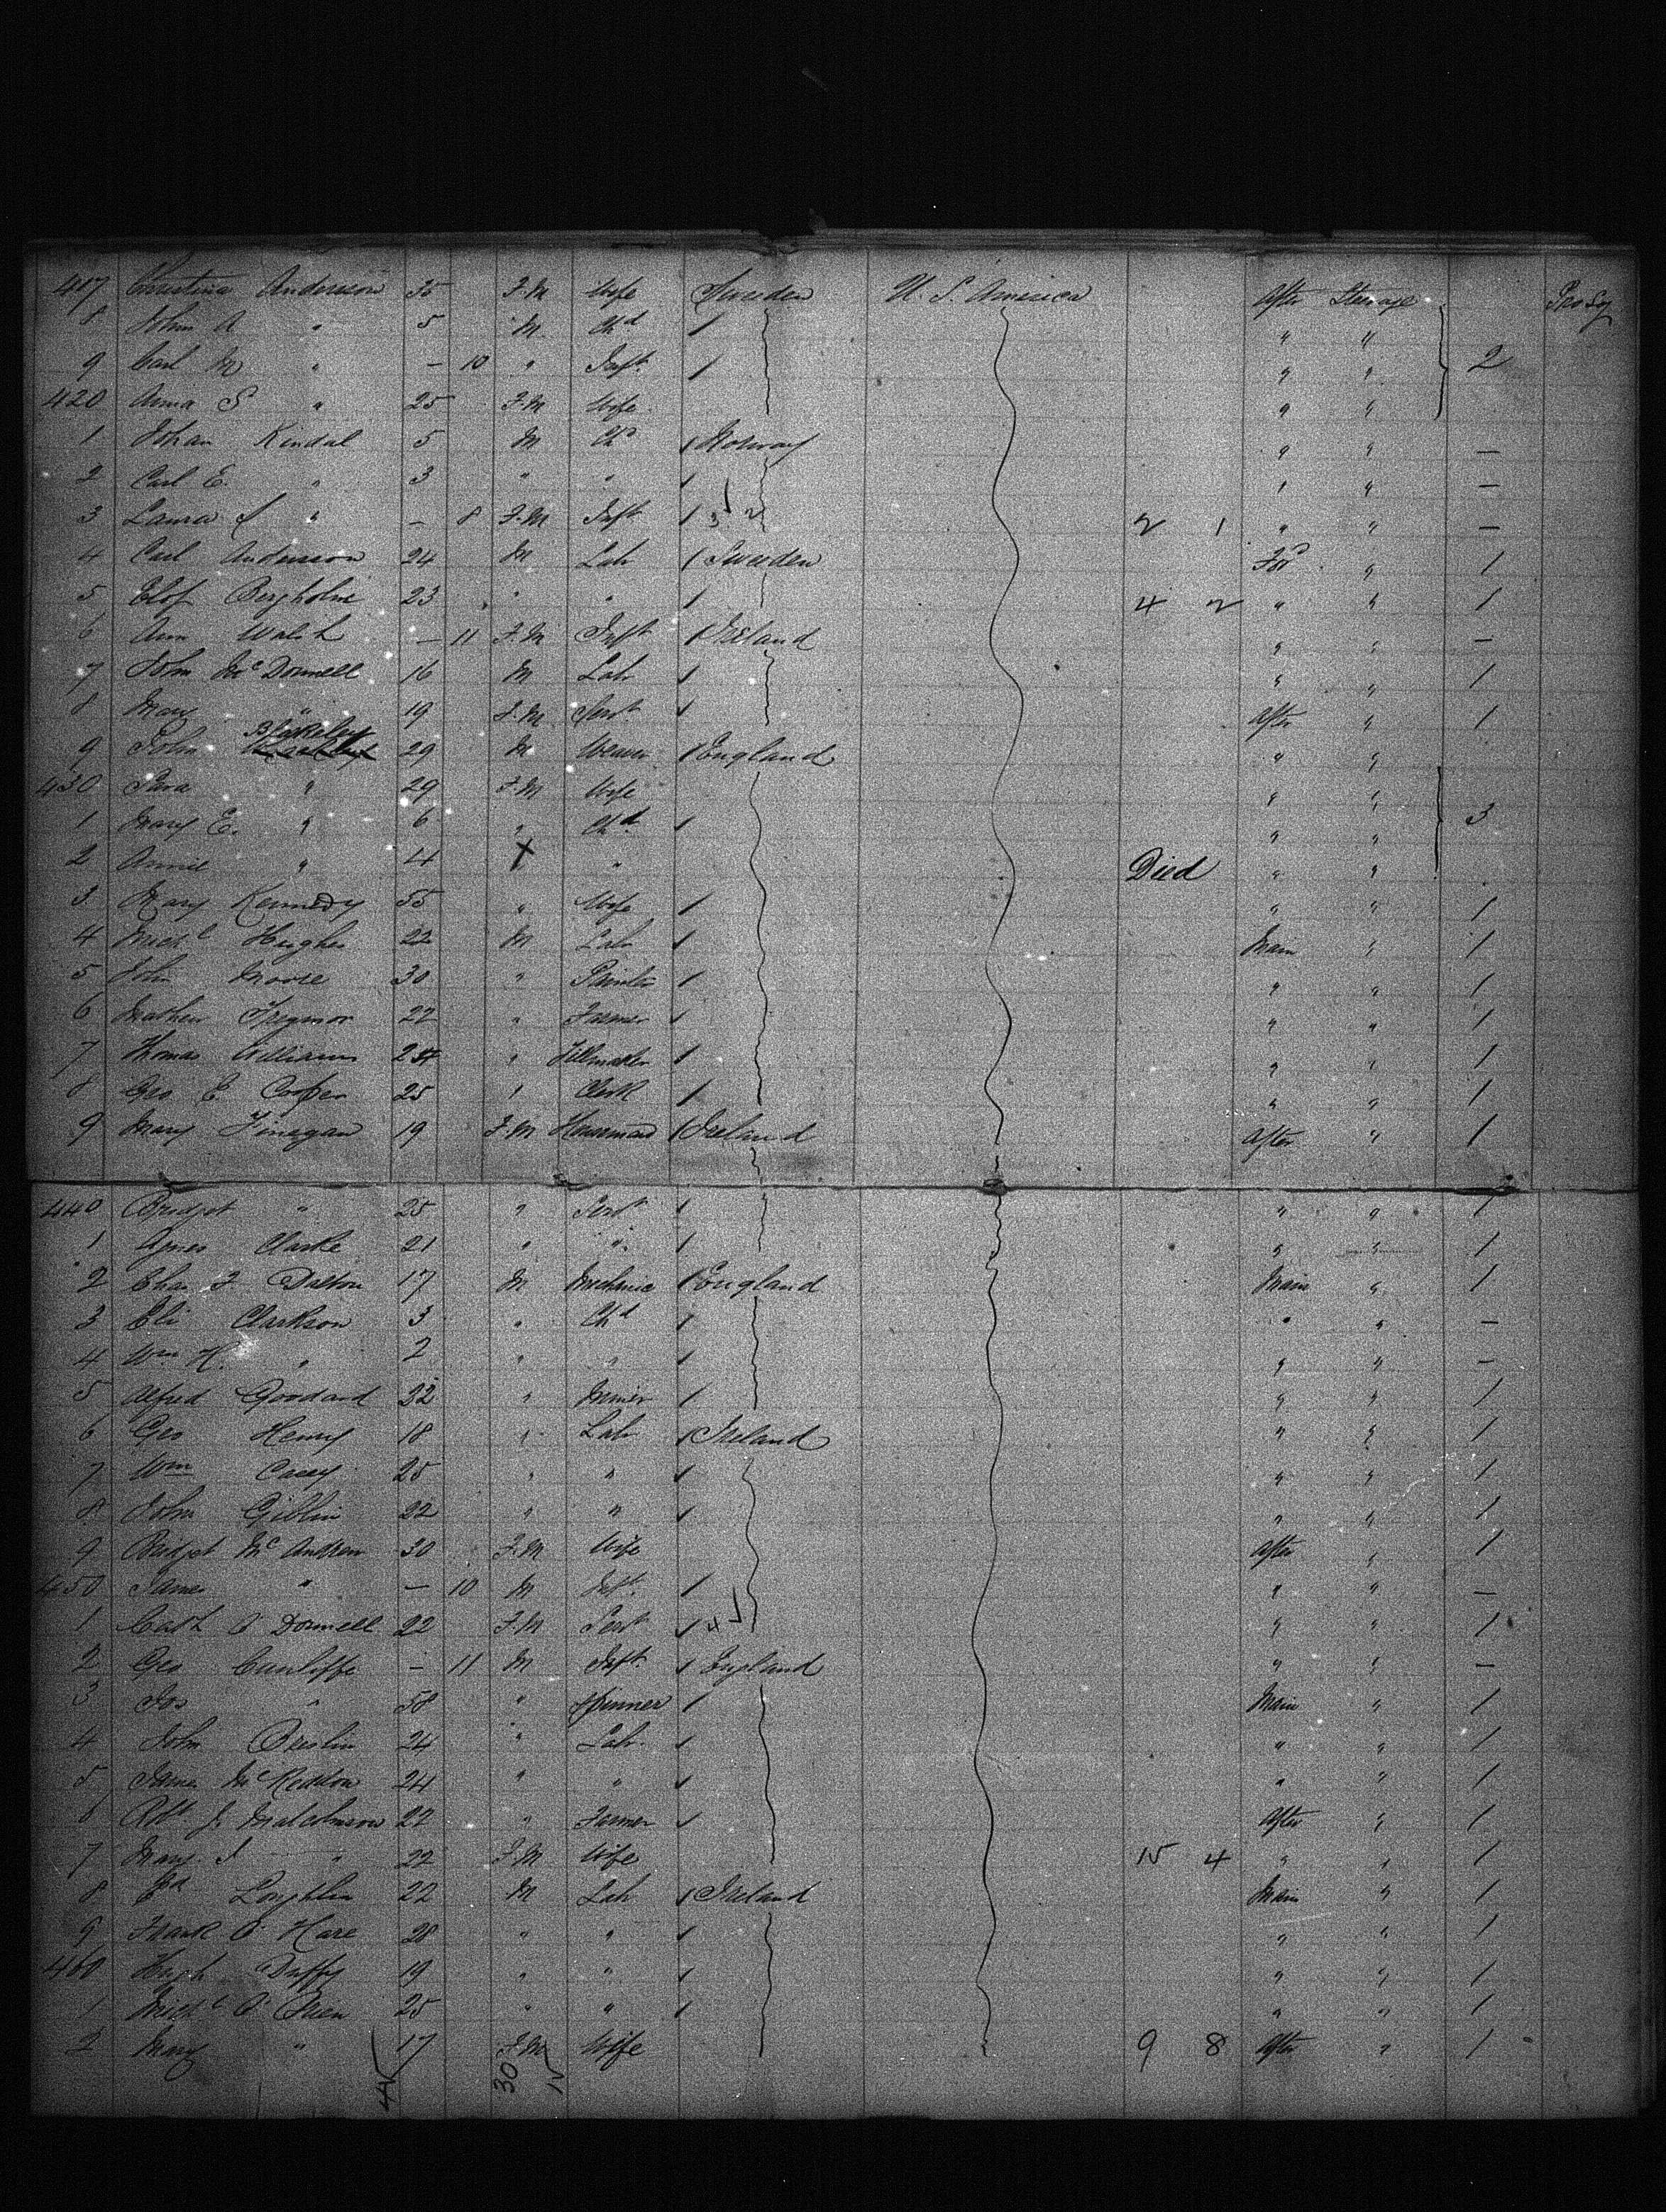 417 Christina Anderson 35 F.M Wife Sweden U. S. America After Steerage Pro Sq
8 John A " 5 M Chd / " "
9 Carl M " - 10 " Inft / " " 2
420 Anna S " 25 F.M Wife " "
1 Johan Kindal 5 M Chd / Norway " " -
2 Carl E. " 3 " " / " " -
3 Laura S " - 8 F.M Inft / 3 2 2 1 " " -
4 Carl Anderson 24 M Lab / Sweden For'd " 1
5 Elof Bergholm 23 " " / 4 2 " " 1
6 Ann Walsh - 11 F.M Inft / Ireland " " -
7 John McDonnell 16 M Lab / " " 1
8 Mary " 19 F.M Servt / After " 1
9 John Blakeley 29 M Weaver / England " "
430 Sara " 29 F.M Wife " "
1 Mary E. " 6 " Chd / " " 3
2 Annie " 4 X " Died " "
3 Mary Kennedy 55 " Wife / " " 1
4 Michl Hughes 22 M Lab / Main " 1
5 John Moore 30 " Painter / " " 1
6 Mathew 22 " Farmer / " " 1
7 Thomas Williams 24 " / " " 1
8 Geo E Cooper 25 " Clerk / " " 1
9 Mary Finegan 19 F.M Housemaid / Ireland After " 1
440 Bridget " 25 " Servt / " " 1
1 Agnes Clarke 21 " " / " " 1
2 Chas F Dalton 17 M Mechanic / England Main " 1
3 Eli Clarkson 3 " Chd / " " -
4 Wm H. " 2 " " / " " -
5 Alfred Goodard 32 " Miner / " " 1
6 Geo Henry 18 " Lab / Ireland " " 1
7 Wm Casey 25 " " / " " 1
8 John Giblin 22 " " / " " 1
9 Bridget McAndrew 30 F.M Wife After " 1
450 James " - 10 M Inft / " " -
1 Cath O'Donnell 22 F.M Servt / 4 " " 1
2 Geo Cunliffe - 11 M Inft / England " " -
3 Jos " 58 " Spinner / Main " 1
4 John Breslin 24 " Lab. / " " 1
5 James 24 " " / " " 1
6 Robt J. Malcolmson 22 " Farmer / After " 1
7 Mary J " 22 F.M Wife 15 4 " " 1
8 Ed Loughlin 22 M Lab / Ireland Main " 1
9 Frank O'Hare 28 " " / " " 1
460 Hugh Duffy 19 " " / " " 1
1 Michl O'Brien 25 " " / " " 1
2 Mary " 17 F.M Wife 9 8 After " 1
45 30 15